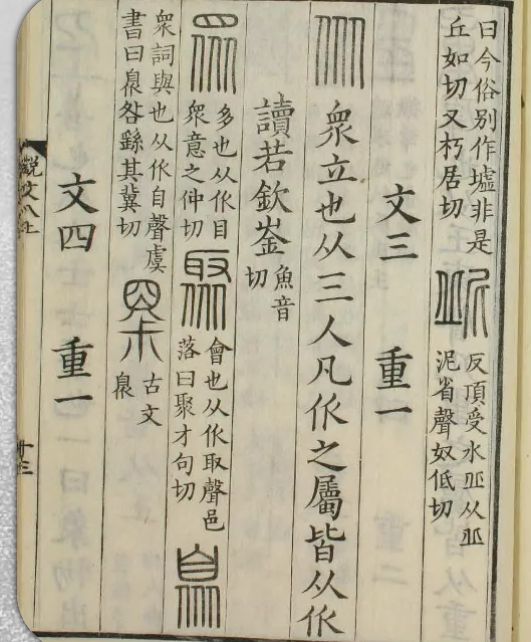 曰今俗别作墟非是
丘如切又朽居切
屔
反頂受水丠从丠
泥省聲奴低切
文三 重一
㐺 衆立也从三人凡㐺之屬皆从㐺
讀若欽崟
魚音
切
衆
多也从㐺目
衆意之仲切
聚
會也从㐺取聲邑
落曰聚才句切
臮
衆詞與也从㐺自聲虞
書曰臮咎繇其冀切
古文
臮
文四 重一
說文八上